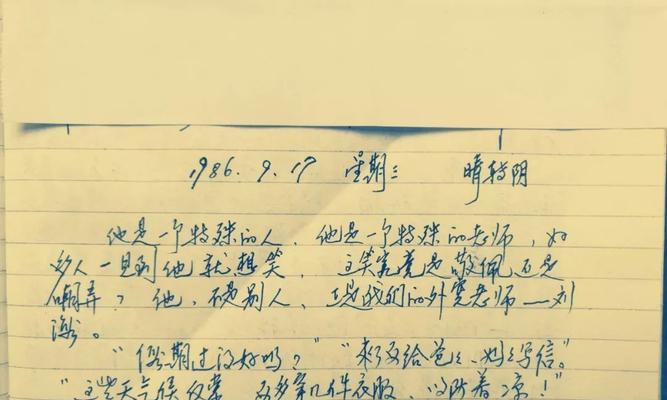 1986.9.17 星期三 晴转阴
他是一个特殊的人,他是一个特殊的老师,好
多人一见到他就想笑,这笑究竟是敬佩还是
嘲弄?他,不是别人,正是我们的外要老师—刘
。
“假期过得好吗?”“来了给爸爸、妈妈写信。”
“这些天气候反常,多穿几件衣服,以防着凉!”